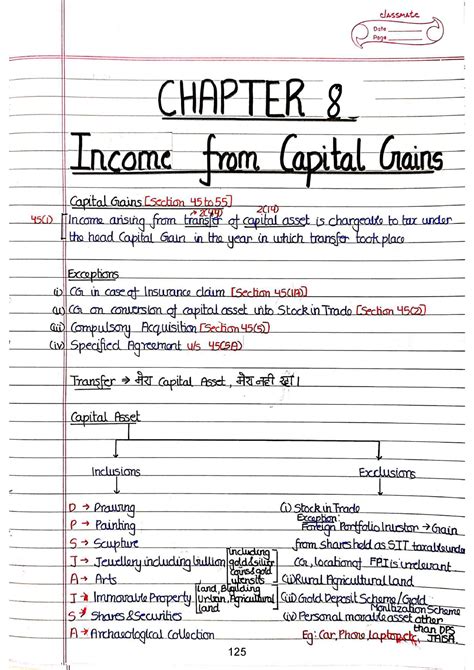 classmate
Date
Page
CHAPTER 8
Income from Capital Gains
Capital Gains [Section 45 to 55]
2(47) 2(14)
45(1) Income arising from transfer of capital asset is chargeable to tax under
the head Capital Gain in the year in which transfer took place
Exceptions
(i) CG in case of Insurance claim [Section 45(1A)]
(ii) CG on conversion of capital asset into Stock in Trade [Section 45(2)]
(iii) Compulsory Acquisition [Section 45(5)]
(iv) Specified Agreement u/s 45(5A)
Transfer → मेरा Capital Asset, मेरा नहीं रहा।
Capital Asset
Inclusions Exclusions
D → Drawing (i) Stock in Trade
Exception:
P → Painting Foreign Portfolio Investor → Gain
S → Sculpture from shares held as SIT taxable under
J → Jewellery including bullion [including gold & silver coins & gold utensils CG, location of FPI is irrelevant
A → Arts (ii) Rural Agricultural land
I → Immovable Property [land, Building Urban, Agricultural land (iii) Gold Deposit Scheme/Gold
Monitization Scheme
S → Shares & Securities (iv) Personal movable asset other
than DPS
A → Archaeological Collection Eg: Car, Phone, laptop etc. JAISA
125